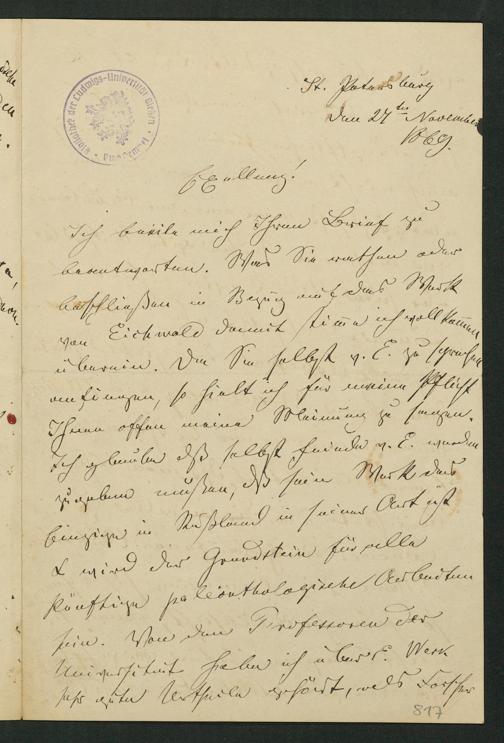 St. Petersburg
den 24ten November
1869.
Ich beeile mich Ihren Brief zu
beantworten. Was Sie rathen oder
beschließen in Bezug auf das Werk
von Eichwald damit stimme ich vollkommen
überein. Da Sie selbst v. E. zu sprechen
anfingen, so hielt ich für meine Pflicht
Ihnen offen meine Meinung zu sagen.
Ich glaube daß selbst Feinde v. E. werden
zugeben müßen, daß sein Werk das
einzige in Rußland in seiner Art ist
& wird der Grundstein für alle
künftige paläonthologische Arbeiten
sein. Von den Professoren der
Universität habe ich über E. Werk
sehr gute Urtheile gehört, als Forscher
817
Bibliothek der Ludwigs-Universität Giessen